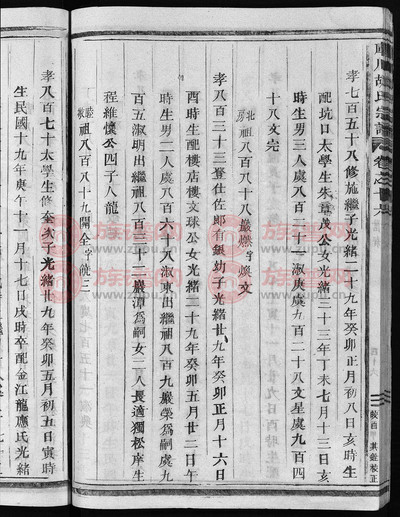 孝七百五十八修施繼子光緒二十九年癸卯正月初八日亥時生
配坑口太學生朱章茂公女光緒三十三年丁未七月十三日亥
時生男三人處八百十一淑庚處九百二十八文星處九百四
十八文完
北房
祖八百八十八嚴燃字煥文
孝八百二十三賽仕佐郎自銀幼子光緒廿九年癸卯正月十六日
酉時生配樓店樓文球公女光緒二十九年癸卯五月廿二日午
時生男二人處八百六十八淑東出繼祖八百九嚴榮為嗣處九
百五淑明出繼祖八百十二嚴潭為嗣女二人長適獨松岸生
程維懷公四子人龍
祖八百八十九開全字統三
孝八百七十太學生修金次子光緒廿九年癸卯五月初五日寅時
生民國十九年庚午十一月十七日戌時卒配金江龍應氏光緒
胡氏宗譜
卷之六
校正